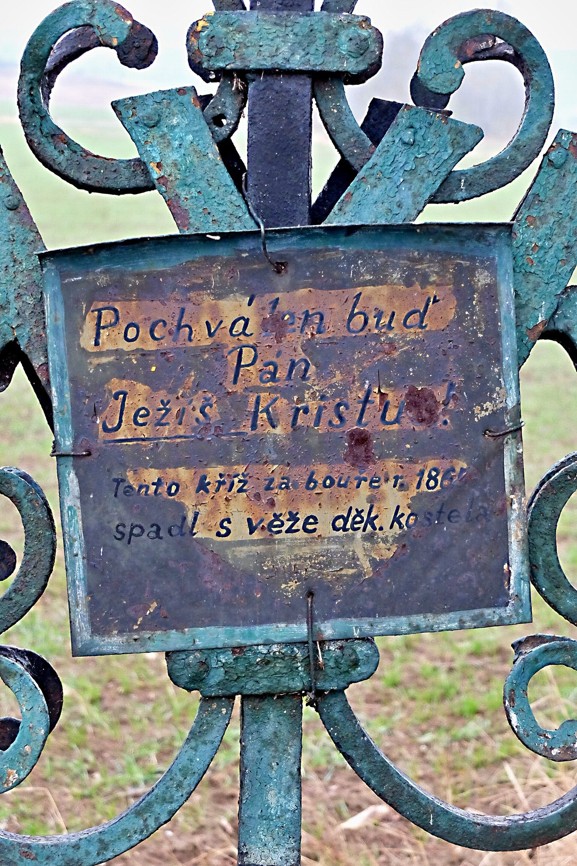 Pochválen buď
Pán
Ježíš Kristus!
Tento kříž za bouře r.
spadl s věže děk. kostela